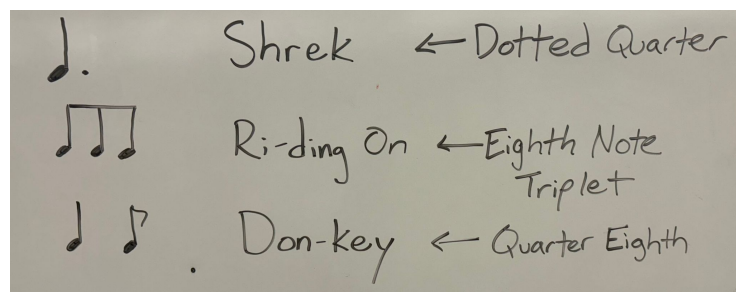 Shrek ← Dotted Quarter
Ri-ding On ← Eighth Note
Triplet
Don-key ← Quarter Eighth